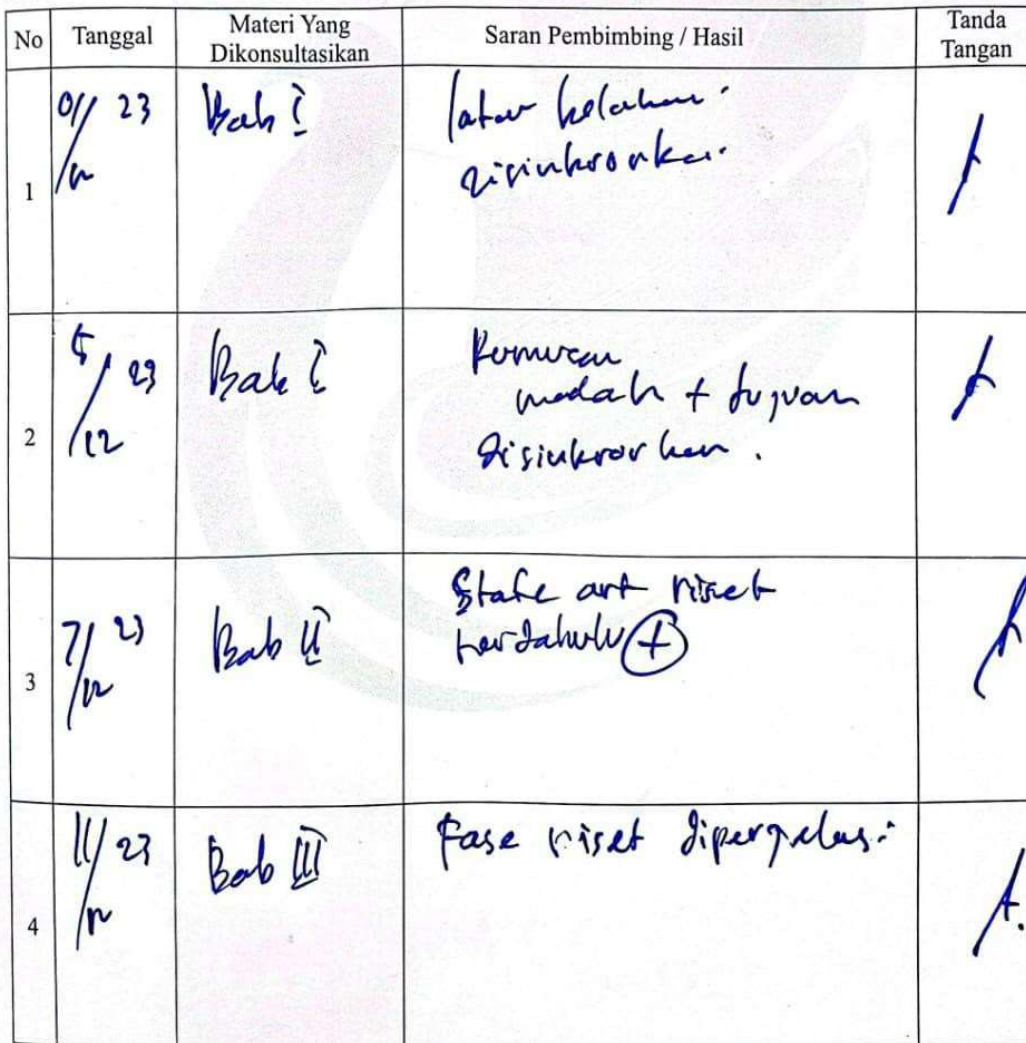 No Tanggal Materi Yang Dikonsultasikan Saran Pembimbing / Hasil Tanda Tangan
1
01/12 23
Bab I
latar belakang
disinkronkan.
2
5/12 23
Bab I
Rumusan
masalah + tujuan
disinkronkan.
3
7/12 23
Bab II
State art riset
terdahulu (+)
4
11/12 23
Bab III
Fase riset diperjelas.